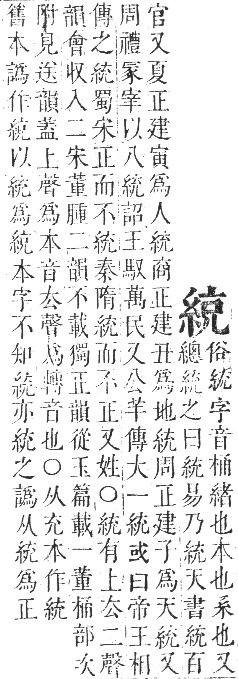 統
俗統字音桶緒也本也系也又
總統之曰統易乃統天書統百
官又夏正建寅爲人統商正建丑爲地統周正建子爲天統又
周禮冢宰以八統詔王馭萬民又公羊傳大一統或曰帝王相
傳之統蜀宋正而不統秦隋統而不正又姓○統有上厺二聲
韻會收入二宋董腫二韻不載獨正韻從玉篇載一董桶部次
附見送韻蓋上聲爲本音厺聲爲轉音也○从充本作統
舊本譌作統以統爲統本字不知統亦統之譌从統爲正